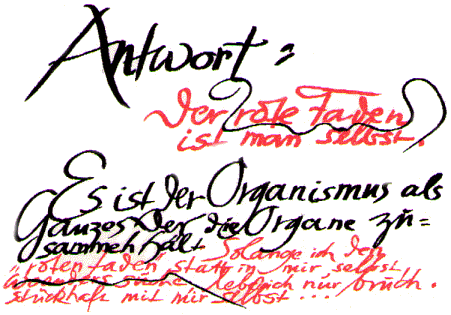 Antwort:
Der rote Faden
ist man selbst.
Es ist der Organismus als
Ganzes der die Organe zu=
sammen hält Solange ich den
"roten Faden" statt in mir selbst
woanders suche leb ich nur bruch.
stückhaft mit mir selbst...